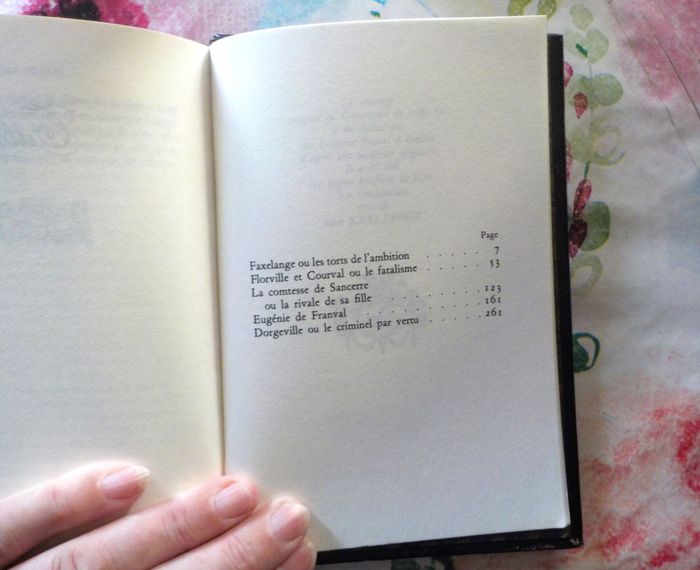 Page
Faxelange ou les torts de l'ambition . . . . . 7
Florville et Courval ou le fatalisme . . . . 53
La comtesse de Sancerre
ou la rivale de sa fille . . . . . . 123
Eugénie de Franval . . . . . . . 161
Dorgeville ou le criminel par vertu . . . . . 261